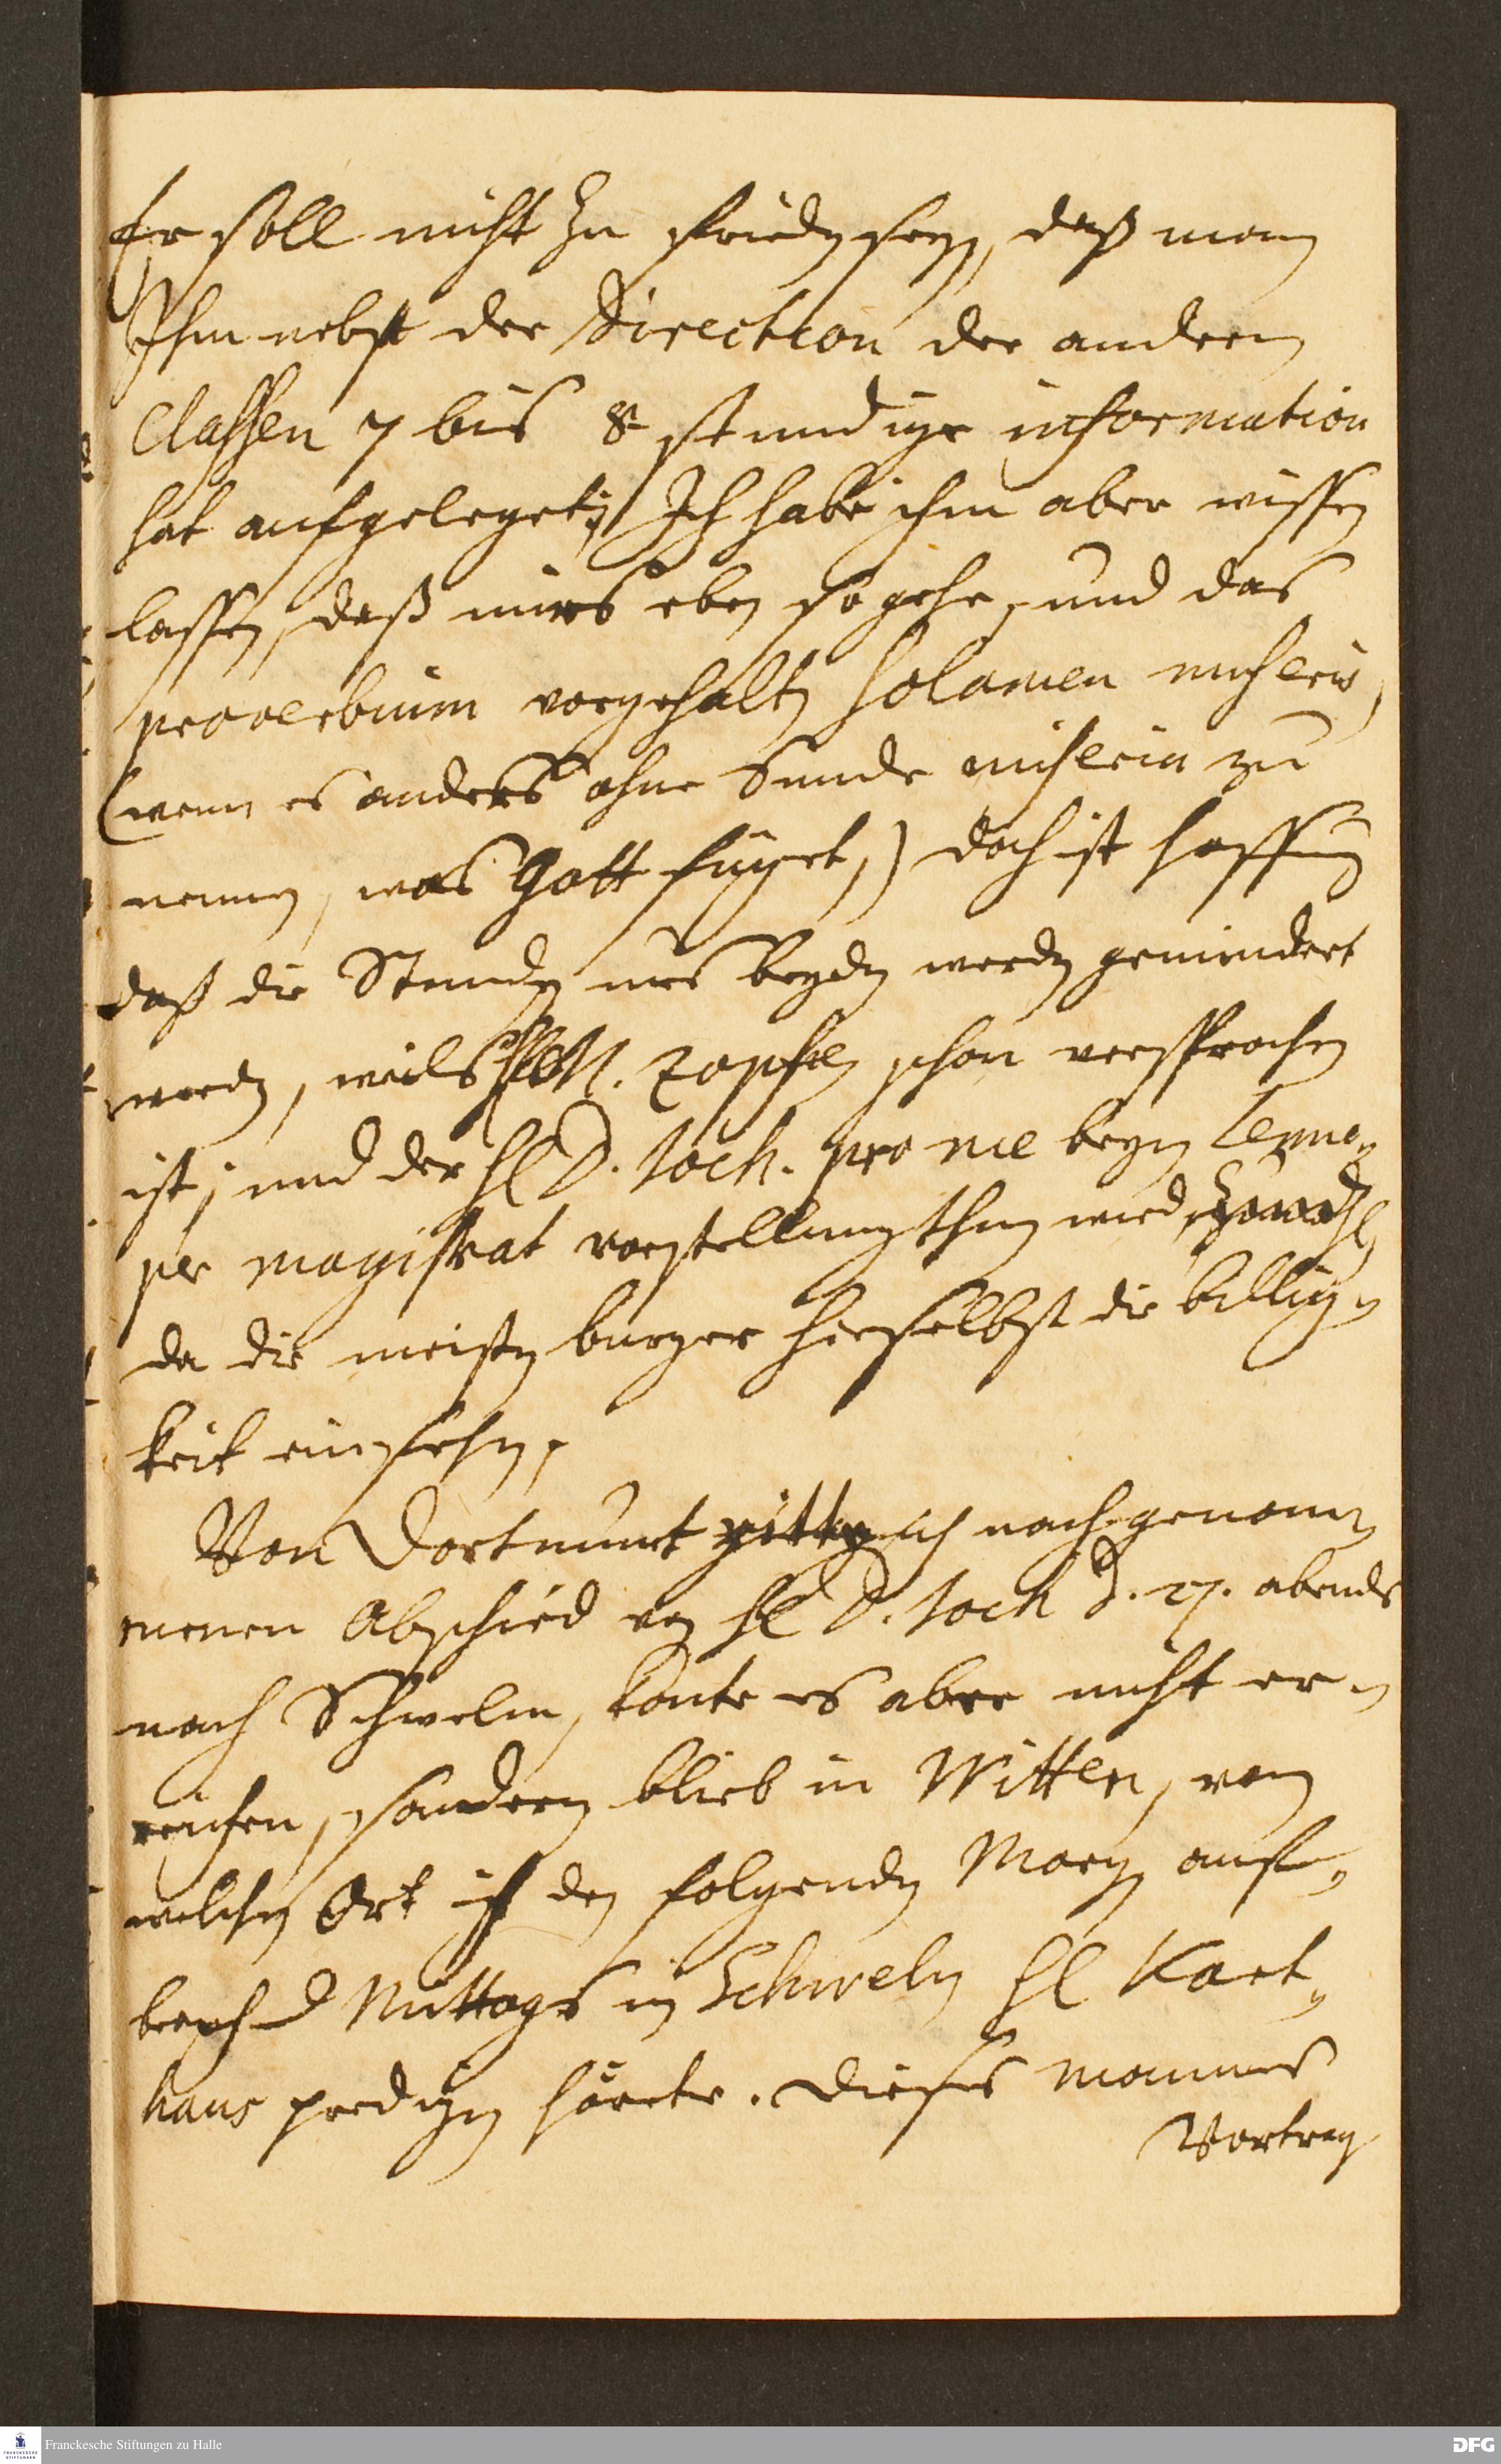 Er soll nicht zu frieden seyn, daß man
Ihm nebst der Direction der andern
Classen 7 bis 8 stundige information
hat aufgeleget; Ich habe ihm aber wissen
lassen, daß mirs eben so gehe, und das
proverbium vorgehalten solamen miseris,
(wenn es anders ohne Sunde miseria zu
nennen, was Gott füget,) doch ist hoffnung
daß die Stunden uns beyden werden gemindert
werden, weils M. Zopfen schon versprochen
ist; und der H D. Joch. pro me beym Lenne,
per magistrat vorstellung thun wird,
da die meisten burger hieselbst die billig-
keit einsehen.
Von Dortmunt ritte ich nach genom-
menen Abschied von H D. Joch d. 27. abends
nach Schwelm, konte es aber nicht er-
reichen, sondern blieb in Witten, von
welchen Ort ich den folgenden Morgen auf-
brach und Mittags in Schwelm H Kart-
haus predigen hörete. Dieses mannes
Vortrag
Franckesche Stiftungen zu Halle
DFG